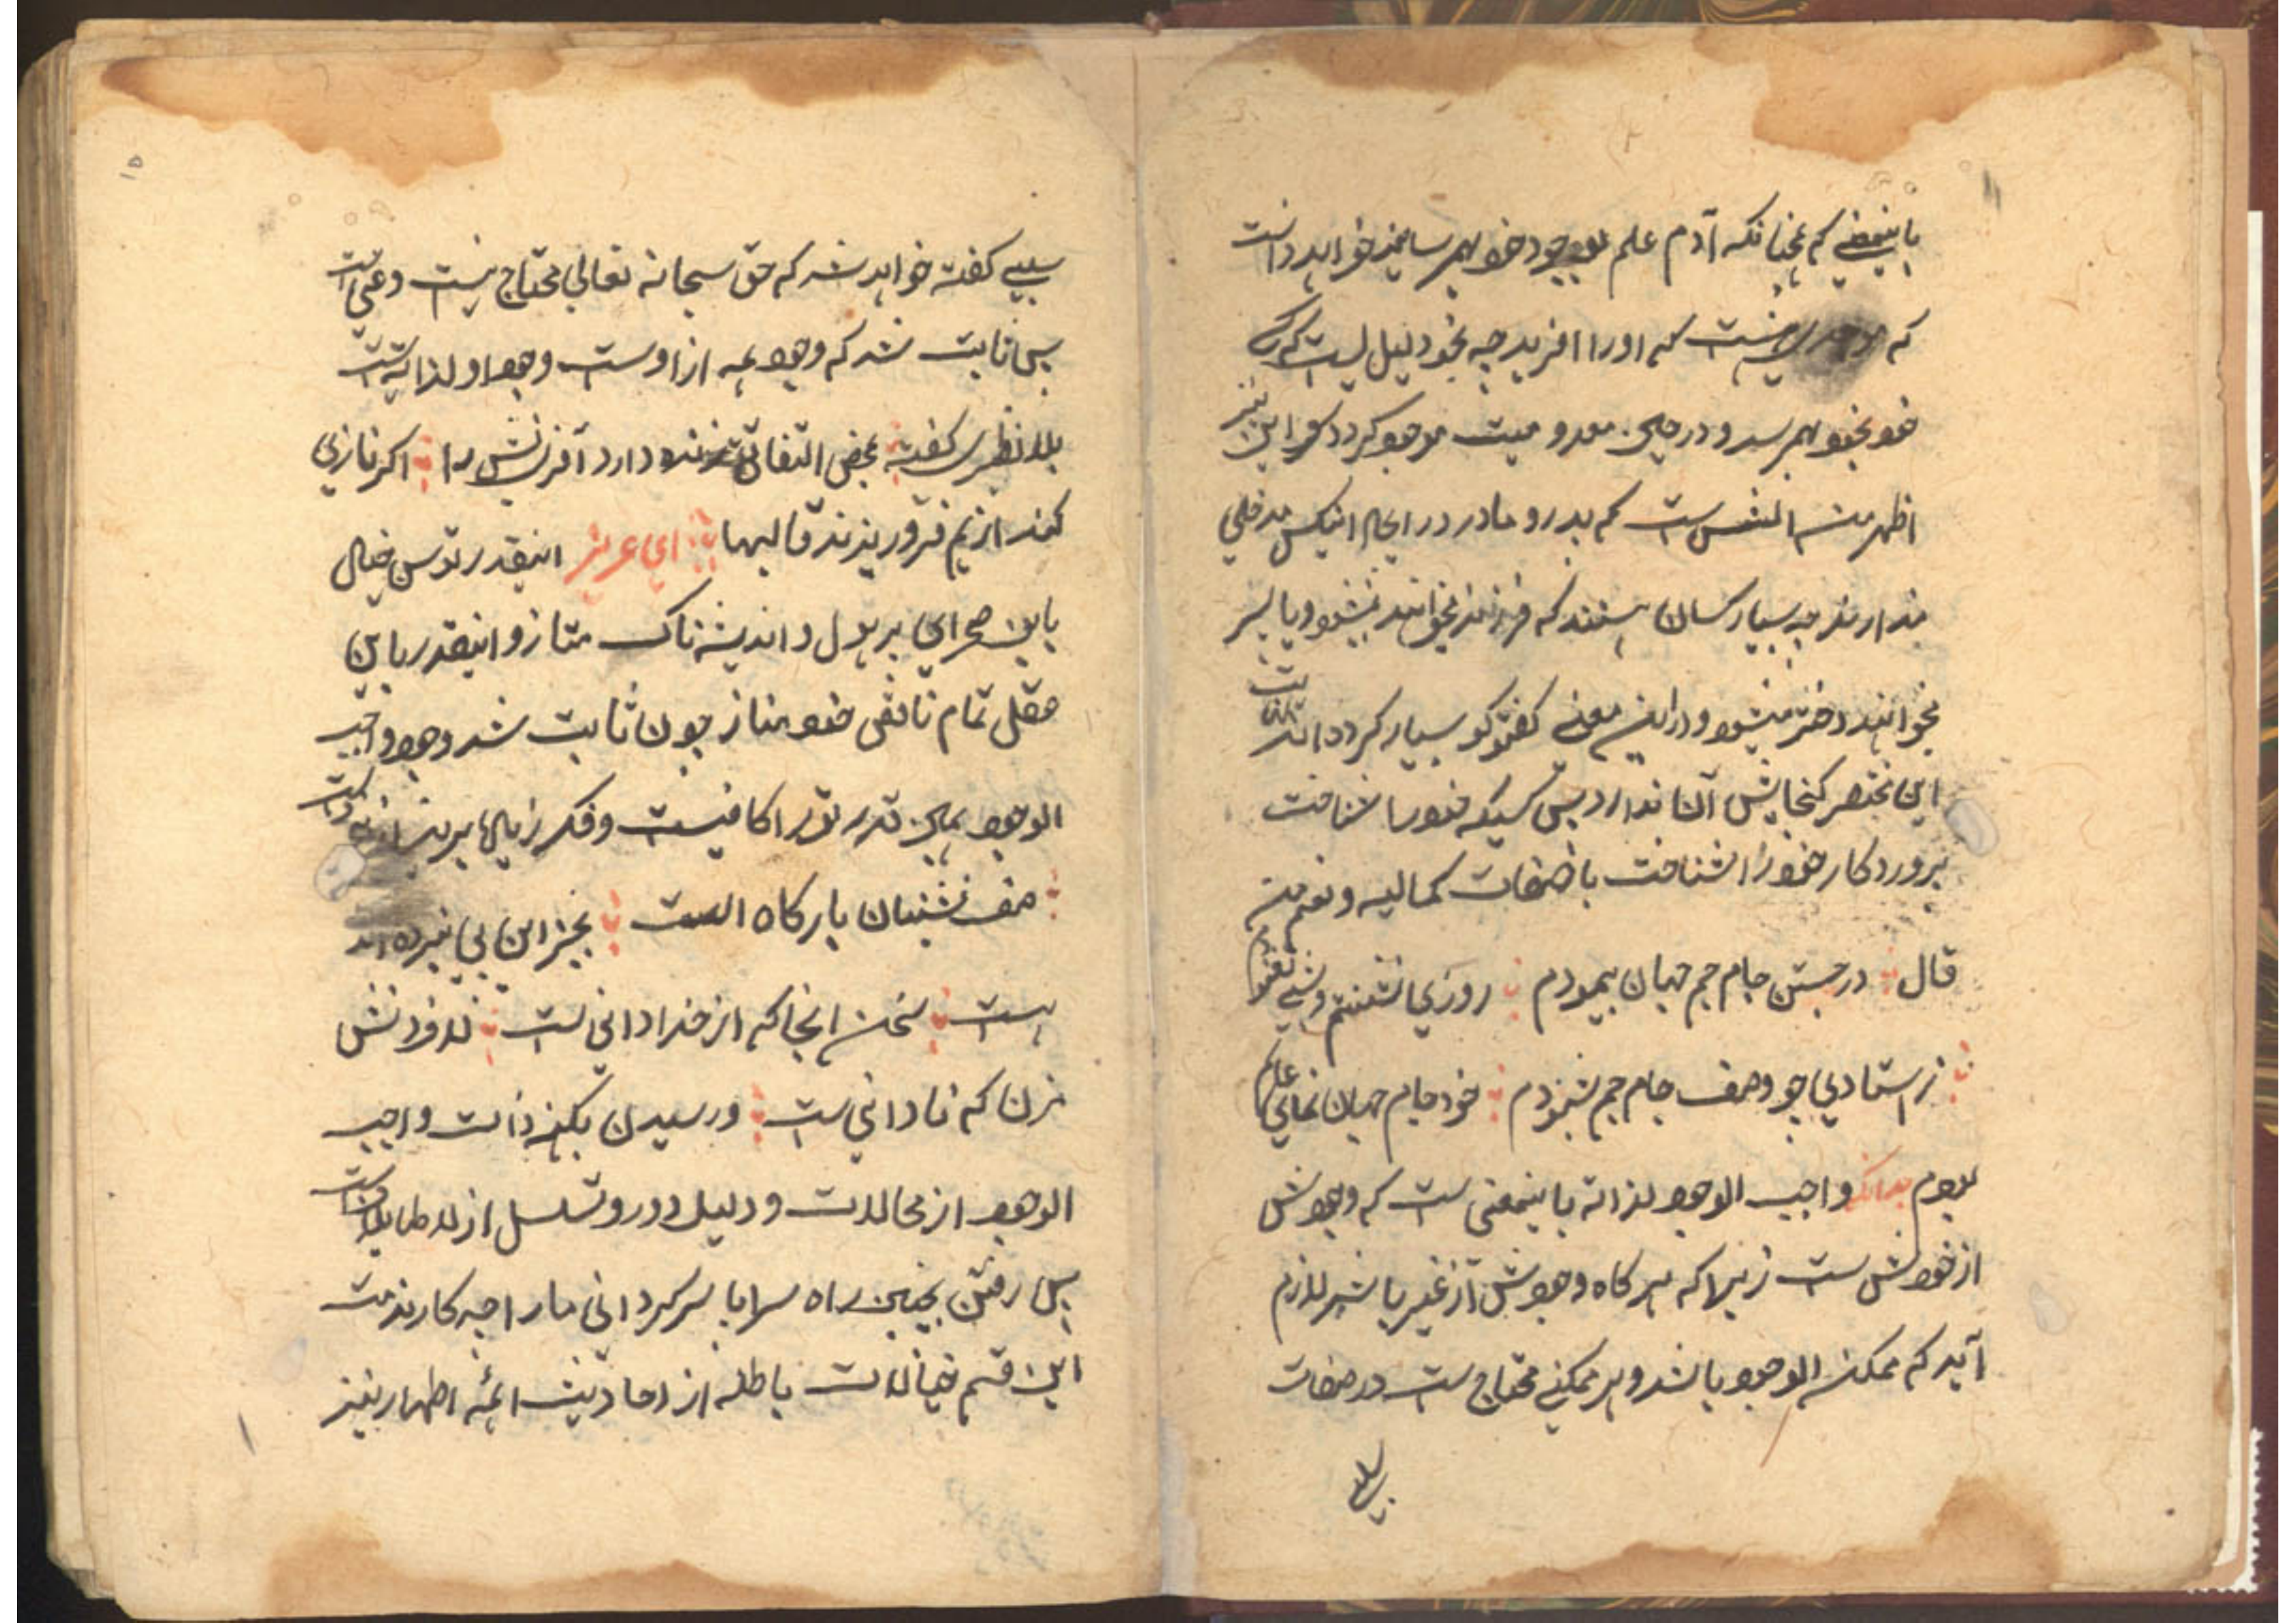 باینمعنی که همچنانکه آدم علم بوجود خود بهم رسانید خواهد دانست
که هست که او را آفرید چه بخود دلیل نیست که کسی
خود بخود بهم رسد و در حین معدومیت موجود گردد و این نیز
اظهر من الشمس ست که پدر و مادر در ایجاد اینکس مدخلی
ندارند چه بسیار کسان هستند که فرزند میخواهند نمیشود و یا پسر
میخواهند دختر میشود و در این معنی گفتگو بسیار کرده اند
این مختصر گنجایش آن ندارد پس کسیکه خود را شناخت
پروردگار خود را شناخت باصفات کمالیه و نعم من
قال در جستن جام جم جهان پیمودم روزی ننشستم و شبی نغنودم
ز استاد چو وصف جام جم بشنودم خود جام جهان نمای عالم
بودم بدانکه واجب الوجود لذاته باینمعنی ست که وجودش
از خودش ست زیرا که هرگاه وجودش از غیر باشد لازم
آید که ممکن الوجود باشد و هر ممکنی محتاج ست در صفات
سلبی
۱۵
سلبی گفته خواهد شد که حق سبحانه تعالی محتاج نیست و غنی است
پس ثابت شد که وجود همه از اوست وجود او لذاته است
بلا نظیری گفته بمحض التفاتی زنده دارد آفرینش را اگر نازی
کند از هم فرو ریزند قالبها ای عزیز اینقدر توسن خیال
باین صحرای پر هول و اندیشه ناک متاز و اینقدر باین
عقل تمام ناقص خود مناز چون ثابت شد وجود واجب
الوجود همین قدر تو را کافیست و فکر زیاده برین
صف نشینان بارگاه الست بجز این پی نبرده اند که
هست سخن آنجا که از خدا دانی ست لاف دانش
مزن که نادانی ست و رسیدن بکنه ذات واجب
الوجود از محالات و دلیل دور و تسلسل از لا طایلات است
پس رفتن بچنین راه سراپا سرگردانی ما را چه کار مذمت
این قسم خیالات باطله از احادیث ائمه اطهار نیز